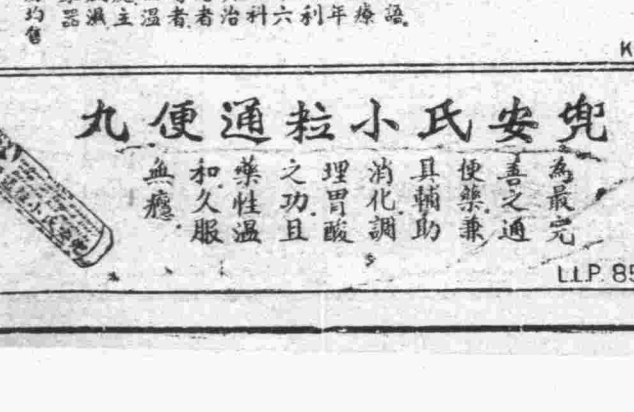 器
者治科六利年療語。
均售
K
兜安氏小粒通便丸
為最完
善之通
便藥兼
具輔助
消化調
理胃酸
之功且
藥性溫
和久服
無癮.
L.L.P. 85